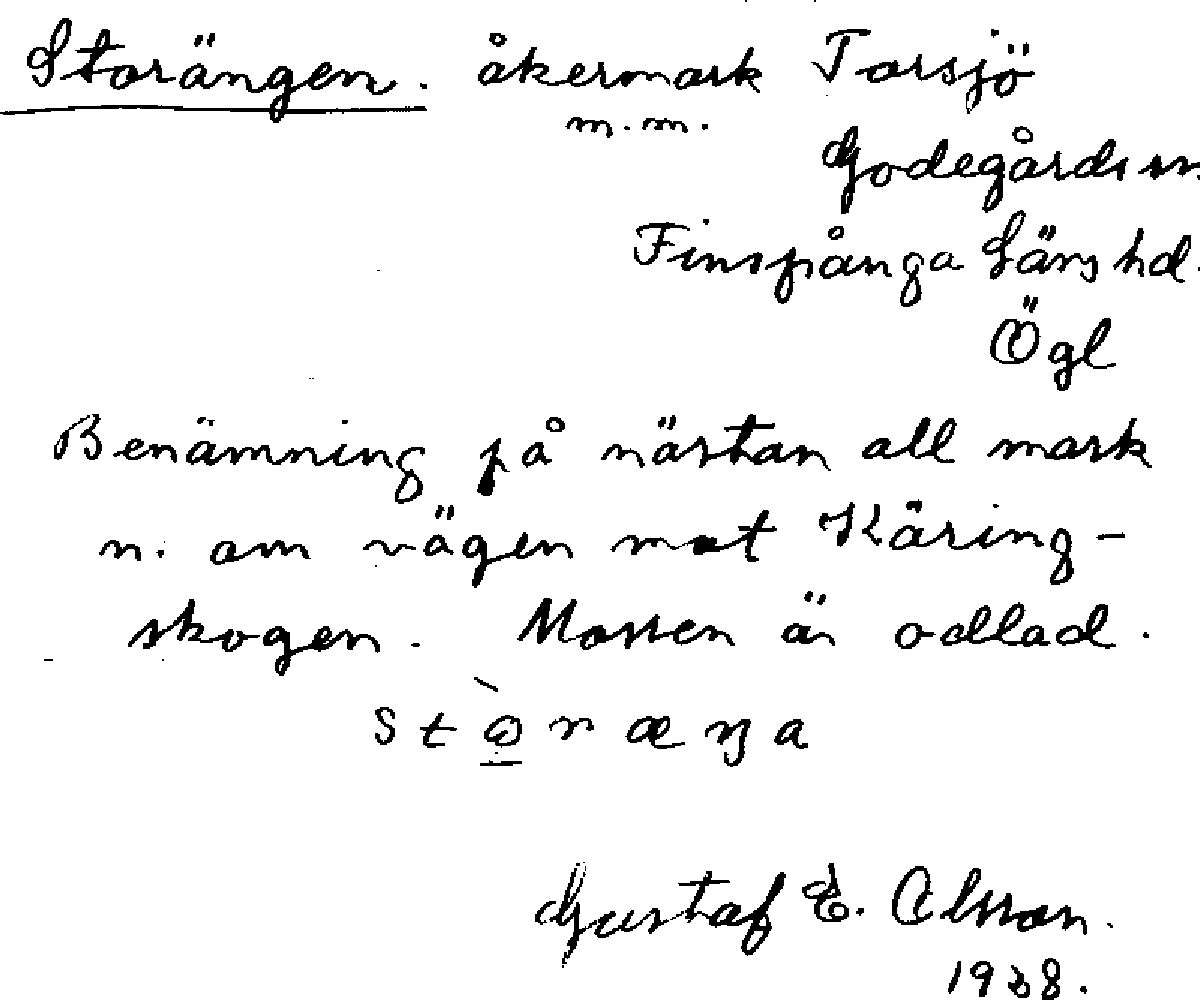 Storängen. åkermark Torsjö
m.m.
Godegårds sn.
Finspånga läns hd.
Ögl
Benämning på nästan all mark
n. om vägen mot Käring-
skogen. Mossen är odlad.
Gustaf E. Olsson.